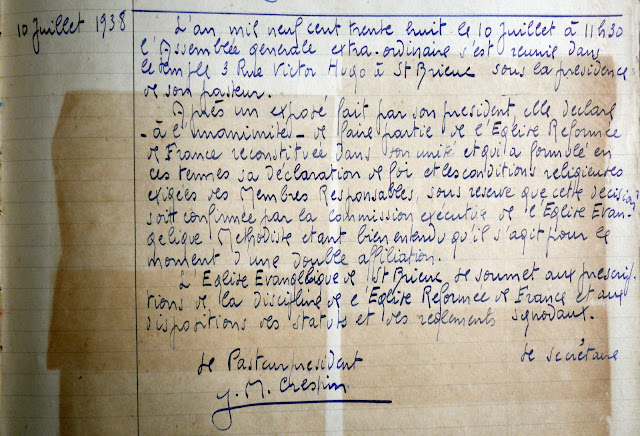 10 Juillet 1938
L'an mil neuf cent trente huit le 10 juillet à 11h30
l'Assemblée generale extra-ordinaire s'est reunie dans
le temple 3 Rue Victor Hugo à St Brieuc sous la présidence
de son pasteur.
Après un exposé fait par son president, elle declare
- à l'unanimité - de faire partie de l'Eglise Reformée
de France reconstituée dans son unité et qui a formulé en
ces termes sa Déclaration de foi et les conditions religieuses
exigées des Membres Responsables, sous reserve que cette decision
soit confirmée par la commission exécutive de l'Eglise Evan-
gelique Methodiste etant bien entendu qu'il s'agit pour le
moment d'une double affiliation.
L'Eglise Evangélique de St Brieuc se soumet aux prescrip-
tions de la Discipline de l'Eglise Reformée de France et aux
dispositions des statuts et des reglements synodaux.
Le Pasteur president
Le secrétaire
J. M. Crespin